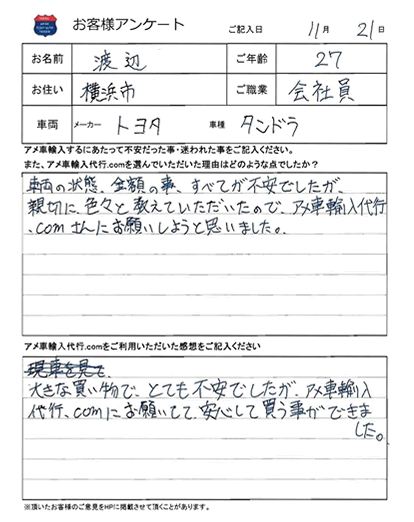 お客様アンケート ご記入日 11月 21日
お名前 渡辺 ご年齢 27
お住い 横浜市 ご職業 会社員
車両 メーカー トヨタ 車種 タンドラ
アメ車輸入するにあたって不安だった事・迷われた事をご記入ください。
また、アメ車輸入代行.comを選んでいただいた理由はどのような点でしたか？
車両の状態、金額の事、すべてが不安でしたが、
親切に、色々と教えていただいたので、アメ車輸入代行
.comさんにお願いしようと思いました。
アメ車輸入代行.comをご利用いただいた感想をご記入ください
現車を見て
大きな買い物で、とても不安でしたが、アメ車輸入
代行、comにお願いして、安心して買う事ができま
した。
※頂いたお客様のご意見をHPに掲載させて頂くことがあります。